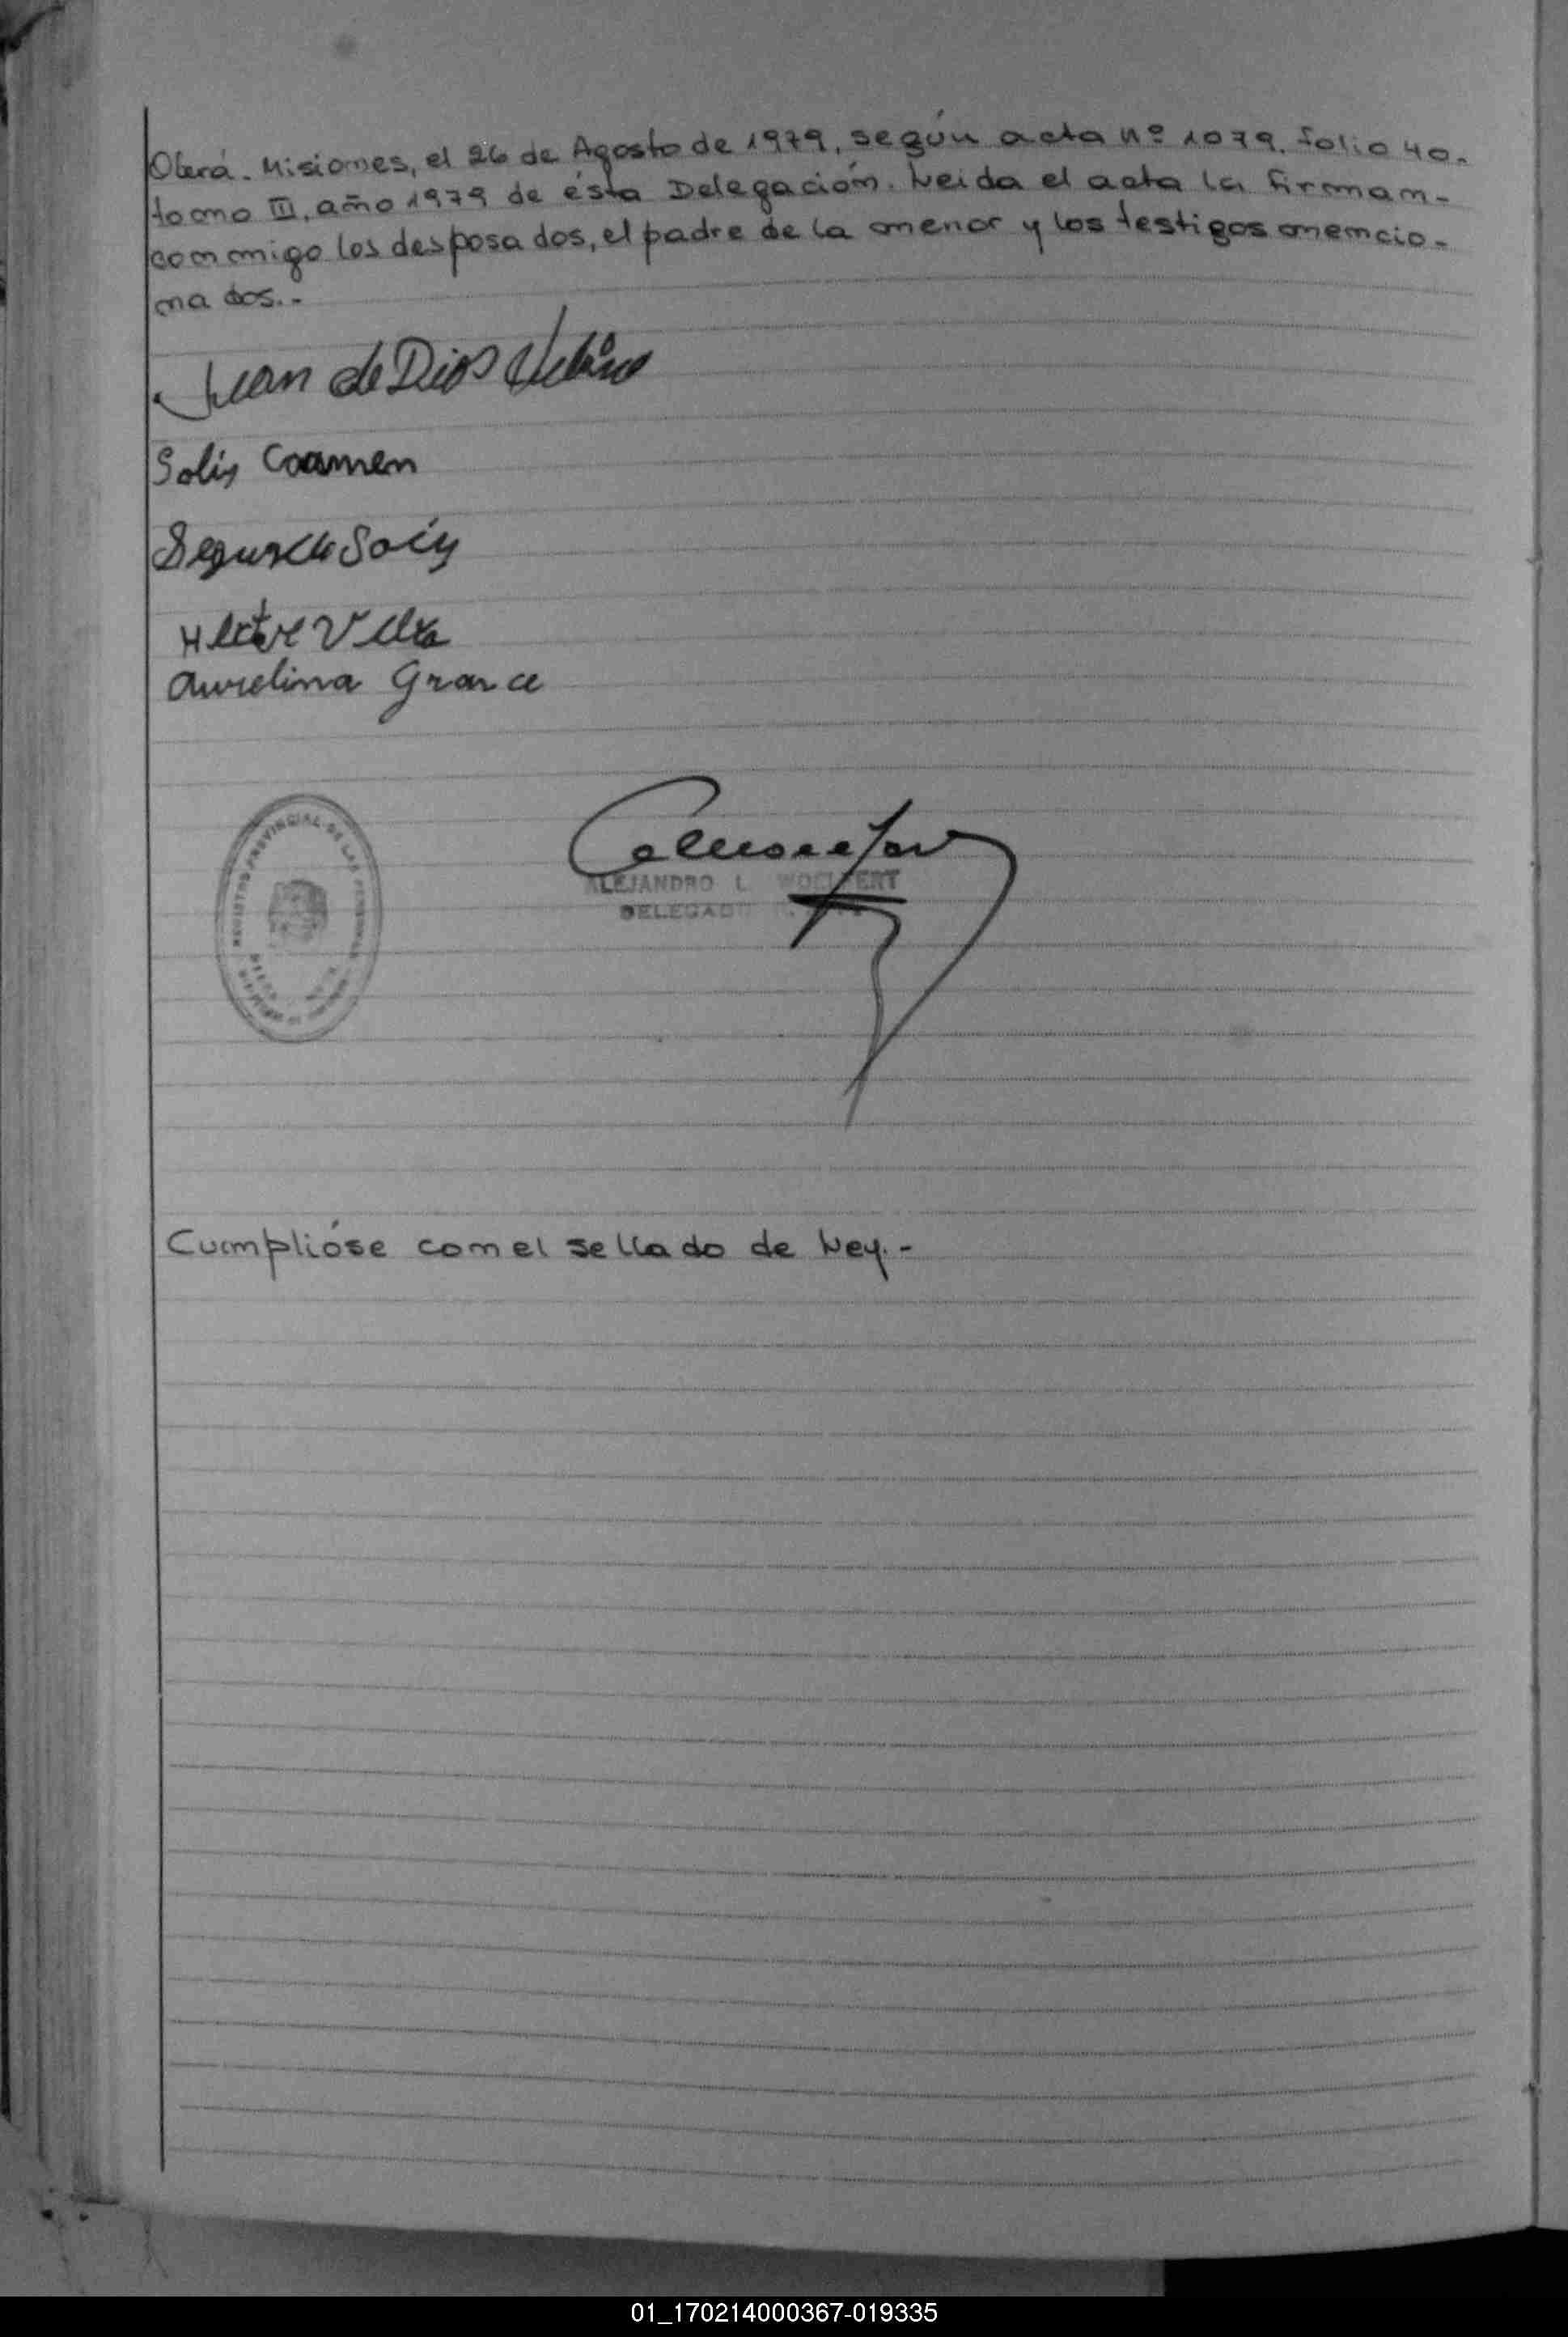 Oberá. Misiones, el 26 de Agosto de 1979, según acta Nº 1079. folio 40.
tomo III, año 1979 de ésta Delegación. Leida el acta la firman-
conmigo los desposados, el padre de la menor y los testigos mencio-
nados.-
Juan de Dios
Solis Carmen
Segundo Solis
Hector
Aurelina Grance
REGISTRO PROVINCIAL DE LAS PERSONAS
ALEJANDRO L. WOELFERT
DELEGADO
Cumplióse con el sellado de Ley.-
01_170214000367-019335